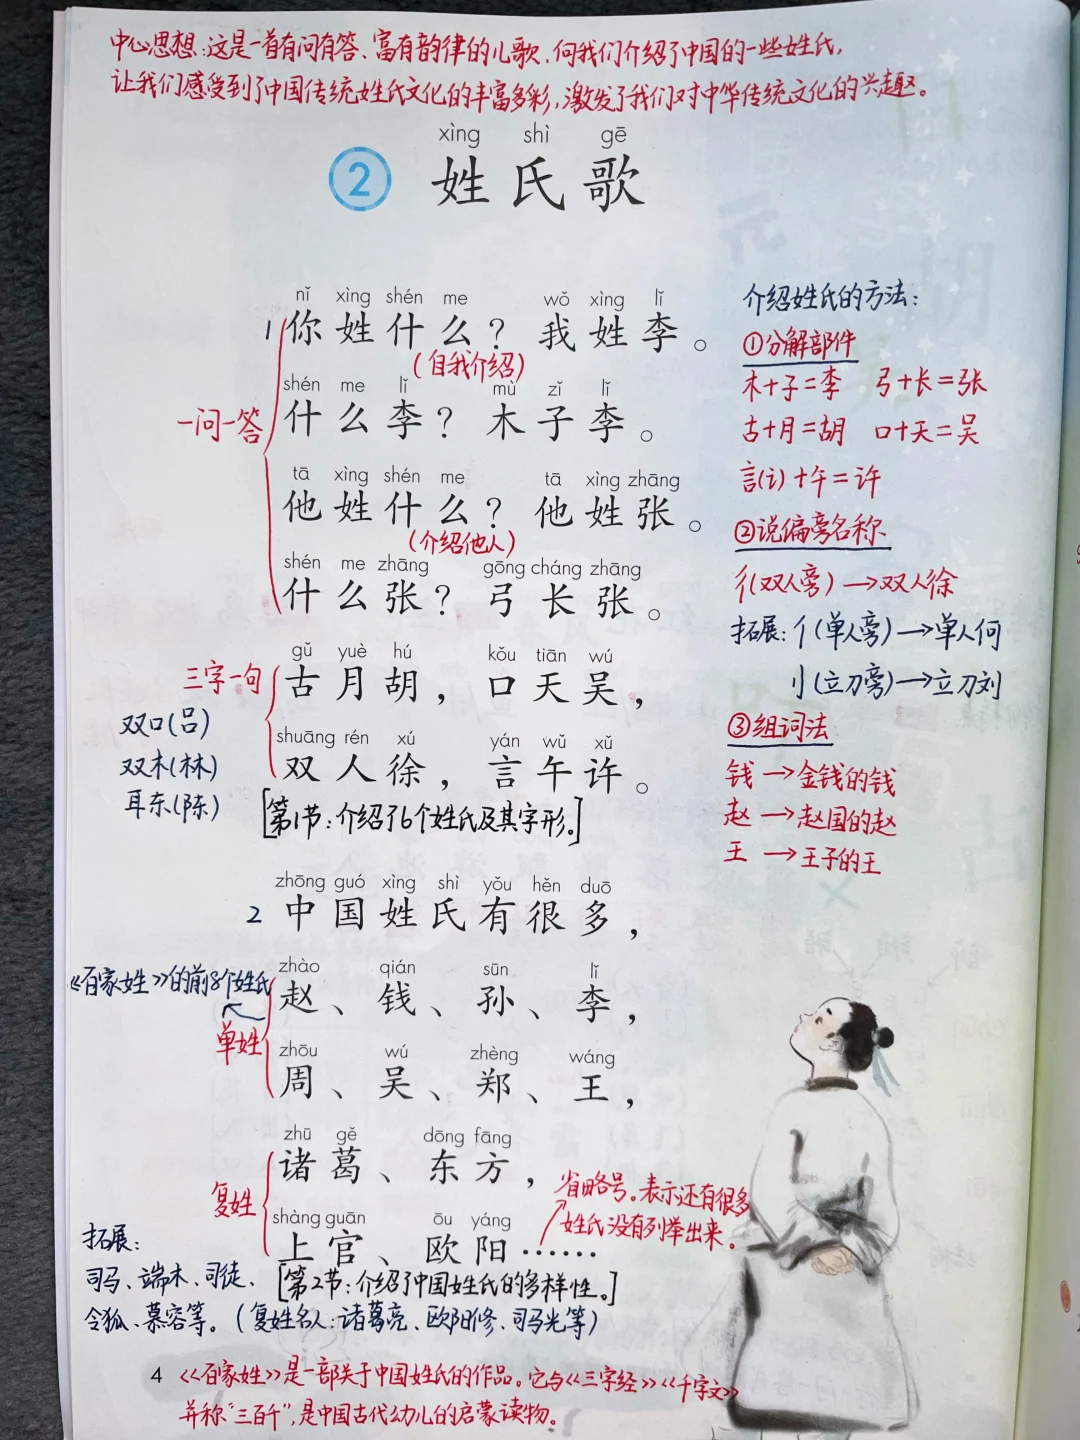 中心思想:这是一首有问有答、富有韵律的儿歌,向我们介绍了中国的一些姓氏,
让我们感受到了中国传统姓氏文化的丰富多彩,激发了我们对中华传统文化的兴趣。
xìng shì gē
2 姓氏歌
nǐ xìng shén me wǒ xìng lǐ
1 你姓什么?我姓李。
(自我介绍)
shén me lǐ mù zǐ lǐ
一问一答
什么李?木子李。
tā xìng shén me tā xìng zhāng
他姓什么?他姓张。
(介绍他人)
shén me zhāng gōng cháng zhāng
什么张?弓长张。
gǔ yuè hú kǒu tiān wú
三字一句
古月胡,口天吴,
shuāng rén xú yán wǔ xǔ
双人徐,言午许。
双口(吕)
双木(林)
耳东(陈)
[第1节:介绍了6个姓氏及其字形。]
介绍姓氏的方法:
①分解部件
木+子=李 弓+长=张
古+月=胡 口+天=吴
言(讠)+午=许
②说偏旁名称
彳(双人旁)→双人徐
拓展:亻(单人旁)→单人何
刂(立刀旁)→立刀刘
③组词法
钱→金钱的钱
赵→赵国的赵
王→王子的王
zhōng guó xìng shì yǒu hěn duō
2 中国姓氏有很多,
《百家姓》的前8个姓氏
单姓
zhào qián sūn lǐ
赵、钱、孙、李,
zhōu wú zhèng wáng
周、吴、郑、王,
zhū gě dōng fāng
诸葛、东方,
复姓
shàng guān ōu yáng
上官、欧阳……
省略号。表示还有很多
姓氏没有列举出来。
拓展:
司马、端木、司徒、
令狐、慕容等。(复姓名人:诸葛亮、欧阳修、司马光等)
[第2节:介绍了中国姓氏的多样性。]
4
《百家姓》是一部关于中国姓氏的作品。它与《三字经》《千字文》
并称“三百千”,是中国古代幼儿的启蒙读物。